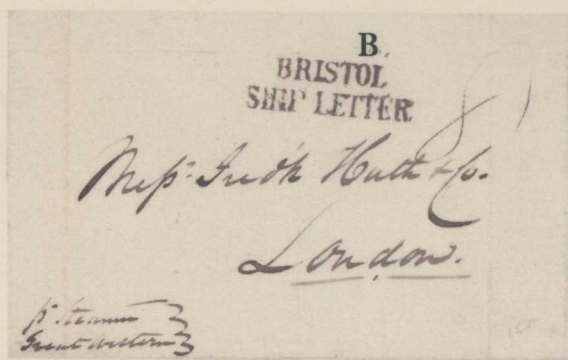 B.
BRISTOL
SHIP LETTER
8
Messrs. Fredk Huth & Co.
London.
pr. steamer
Great Western